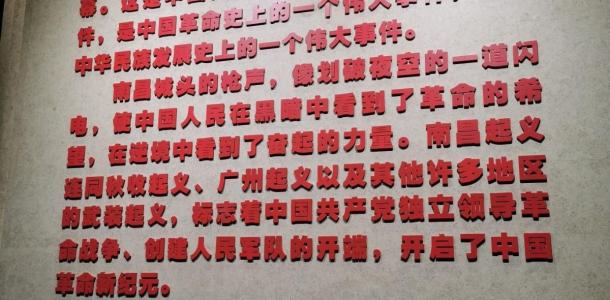 幕。这是中国
件，是中国革命史上的一个伟大事件，
中华民族发展史上的一个伟大事件。
南昌城头的枪声，像划破夜空的一道闪
电，使中国人民在黑暗中看到了革命的希
望，在逆境中看到了奋起的力量。南昌起义
连同秋收起义、广州起义以及其他许多地区
的武装起义，标志着中国共产党独立领导革
命战争、创建人民军队的开端，开启了中国
革命新纪元。